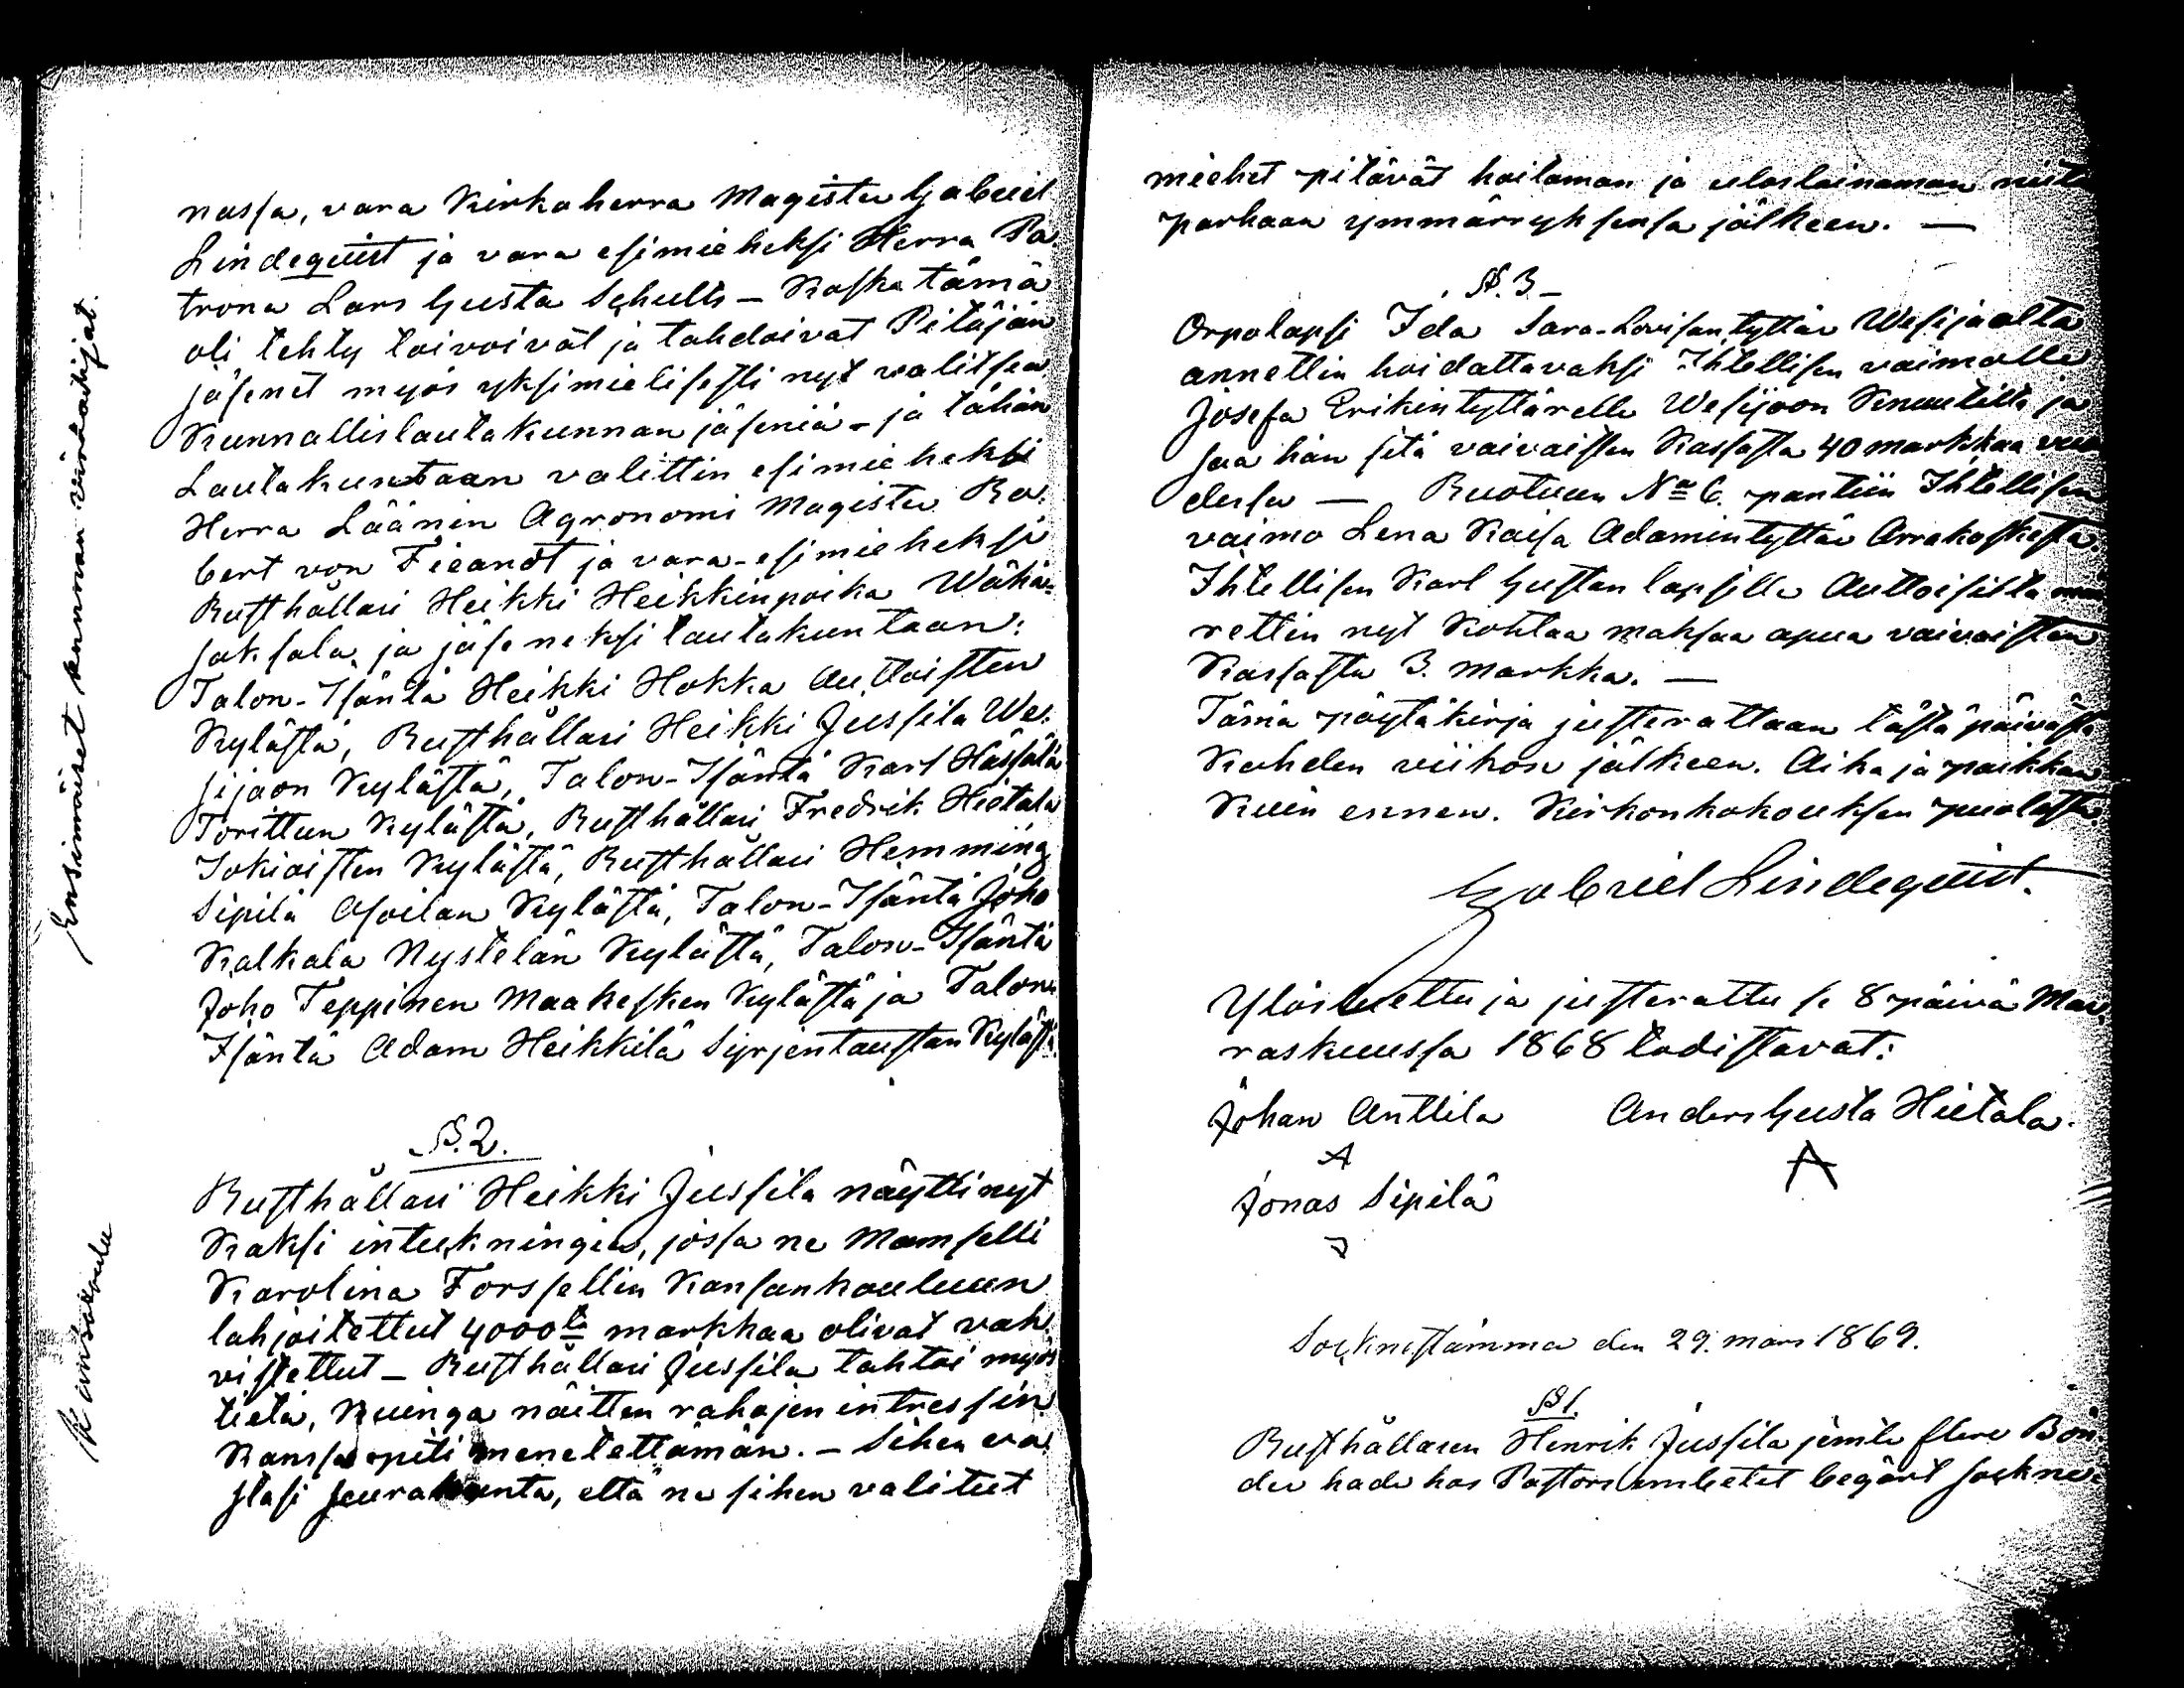 Ensimmäiset kunnan virkailijat.
nassa, vara Kirkoherra Magister Gabriel
Lindequist ja vara esimieheksi Herra Pa-
trona Lars Gusta Schults – Koska tämä
oli tehty toivoivat ja tahdoivat Pitäjän
jäsenet myös yksimielisesti nyt valitsea
Kunnallislautakunnan jäseniä – ja tähän
Lautakuntaan valittin esimieheksi
Herra Läänin Agronomi Magister Ro-
bert von Fieandt ja vara-esimieheksi
Rusthållari Heikki Heikkinpoika Wähä-
saksala, ja jäseneksi lautakuntaan:
Talon-Isäntä Heikki Hokka Auttoisten
Kylästä, Rusthållari Heikki Jussila We-
sijaon Kylästä, Talon-Isäntä Karl Hassala
Torittun Kylästä, Rusthållari Fredrik Hietala
Jokioisten Kylästä, Rusthållari Hemming
Sipilä Osoilan Kylästä, Talon-Isäntä Joho
Kalkala Nystelän Kylästä, Talon-Isäntä
Joho Teppinen Maakesken Kylästä ja Talon-
Isäntä Adam Heikkilä Syrjentaustan Kylästä.
§. 2.
Kansakoulu
Rusthållari Heikki Jussila näytti nyt
Kaksi inteckningia, jossa ne Mamselli
Karolina Forssellin Kansankouluun
lahjoitettut 4000ta markkaa olivat vah-
vistettut – Rusthållari Jussila tahtoi myös
tietä, Kuinga näitten rahojen intressin
Kanssa piti menetettämän. – Sihen va-
stasi seurakunta, että ne sihen valitut
miehet pitävät hoitaman ja uloslainaman niitä
parhaan ymmärryksensä jälkeen. —
§. 3 –
Orpolapsi Ida Sara-Lovisantyttär Wesijaolta
annettin hoidattavaksi Ihtellisen vaimolle
Josefa Erikintyttärelle Wesijaon Knuutilta ja
saa hän sitä vaivaisten Kassasta 40 markkaa vuo-
dessa — Ruotuun No 6. pantiin Ihtellisen
vaimo Lena Kaisa Adamintyttär Arrakoskesta.
Ihtellisen Karl Gustan lapsille Auttoisilta
rettin nyt Kohtaa maksaa apua vaivaisten
Kassasta 3. markka. —
Tämä pöytäkirja justerattaan tästä päivästä
Kahden viikon jälkeen. Aika ja paikka
Kuin ennen. Kirkonkokouksen puolesta.
Gabriel Lindequist.
Ylösluettu ja justerattu se 8 päivä Mar-
raskuussa 1868 todistavat:
Johan Anttila Anders Gusta Hietala.
Jonas Sipilä
Socknestämma den 29. mars 1869.
§ 1.
Rusthållaren Henrik Jussila jemte flere Bön-
der hade hos Pastors embetet begärt sockne-